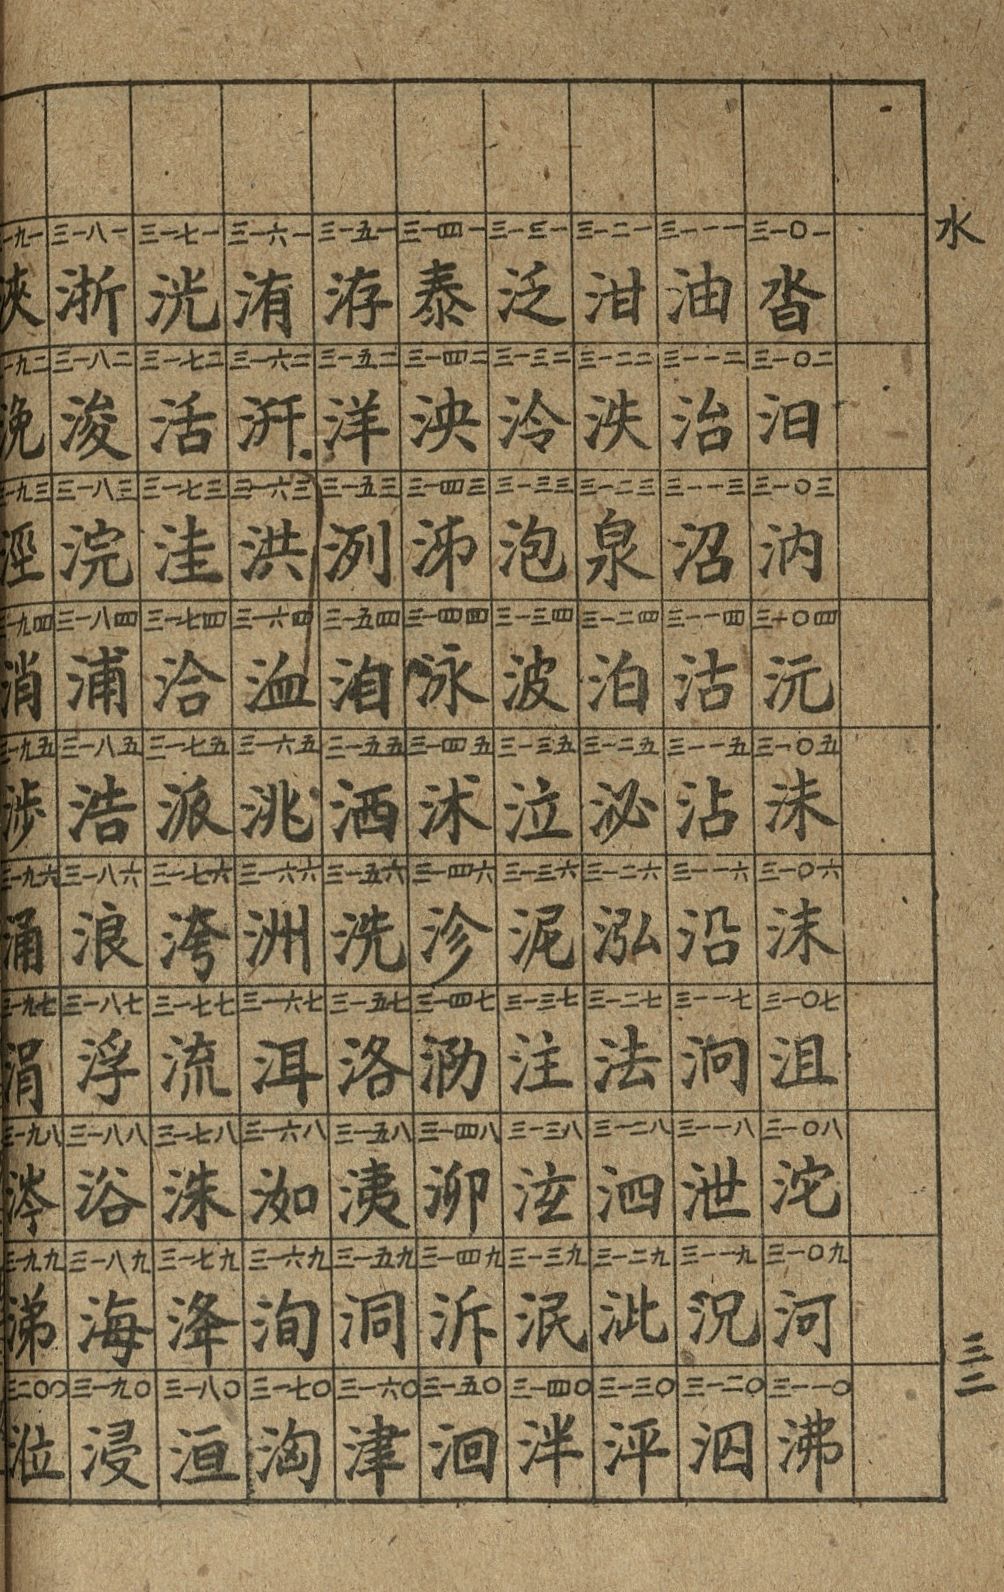 水
三一〇一 沓 三一〇二 汨 三一〇三 汭 三一〇四 沅 三一〇五 沬 三一〇六 沫 三一〇七 沮 三一〇八 沱 三一〇九 河 三一一〇 沸
三一一一 油 三一一二 治 三一一三 沼 三一一四 沽 三一一五 沾 三一一六 沿 三一一七 泂 三一一八 泄 三一一九 況 三一二〇 泅
三一二一 泔 三一二二 泆 三一二三 泉 三一二四 泊 三一二五 泌 三一二六 泓 三一二七 法 三一二八 泗 三一二九 泚 三一三〇 泙
三一三一 泛 三一三二 泠 三一三三 泡 三一三四 波 三一三五 泣 三一三六 泥 三一三七 注 三一三八 泫 三一三九 泯 三一四〇 泮
三一四一 泰 三一四二 泱 三一四三 泲 三一四四 泳 三一四五 沭 三一四六 沴 三一四七 泐 三一四八 泖 三一四九 泝 三一五〇 洄
三一五一 洊 三一五二 洋 三一五三 洌 三一五四 洎 三一五五 洒 三一五六 洗 三一五七 洛 三一五八 洟 三一五九 洞 三一六〇 津
三一六一 洧 三一六二 汧 三一六三 洪 三一六四 洫 三一六五 洮 三一六六 洲 三一六七 洱 三一六八 洳 三一六九 洵 三一七〇 洶
三一七一 洸 三一七二 活 三一七三 洼 三一七四 洽 三一七五 派 三一七六 洿 三一七七 流 三一七八 洙 三一七九 洚 三一八〇 洹
三一八一 浙 三一八二 浚 三一八三 浣 三一八四 浦 三一八五 浩 三一八六 浪 三一八七 浮 三一八八 浴 三一八九 海 三一九〇 浸
三一九一 浹 三一九二 浼 三一九三 涇 三一九四 消 三一九五 涉 三一九六 涌 三一九七 涓 三一九八 涔 三一九九 涕 三二〇〇 涖
三二